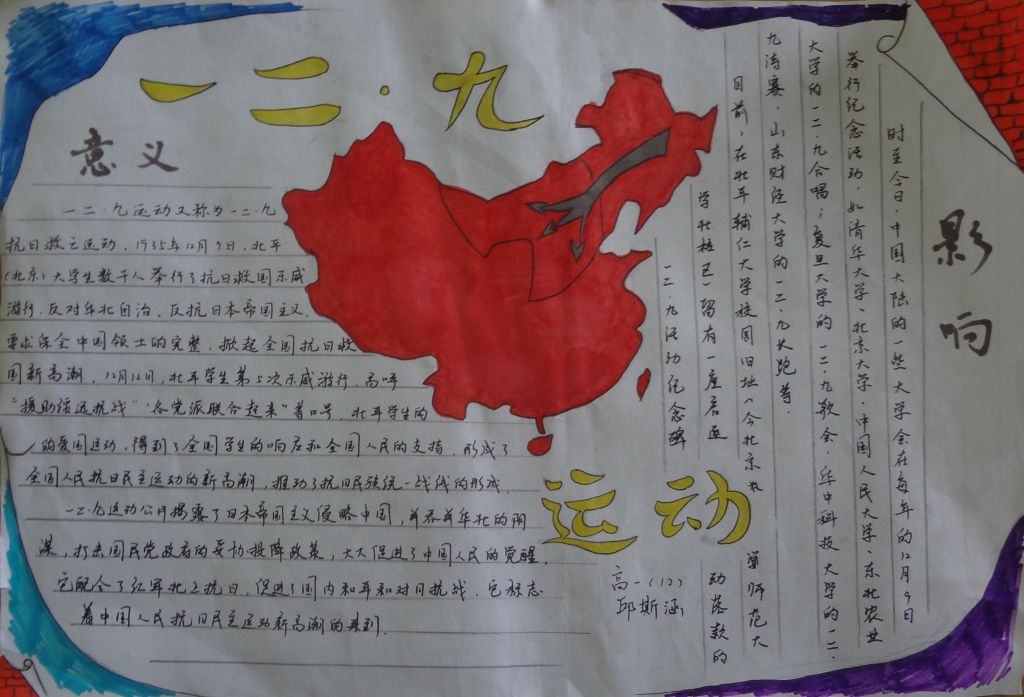 一二·九
运动
意义
一二·九运动又称为一二·九
抗日救亡运动，1935年12月9日，北平
（北京）大学生数千人举行了抗日救国示威
游行，反对华北自治，反抗日本帝国主义，
要求保全中国领土的完整，掀起全国抗日救
国新高潮，12月12日，北平学生第5次示威游行，高呼
“援助绥远抗战”“各党派联合起来”等口号，北平学生的
的爱国运动，得到了全国学生的响应和全国人民的支持，形成了
全国人民抗日民主运动的新高潮，推动了抗日民族统一战线的形成．
一二·九运动公开揭露了日本帝国主义侵略中国，并吞并华北的阴
谋，打击国民党政府的妥协投降政策，大大促进了中国人民的觉醒，
它配合了红军北上抗日，促进了国内和平和对日抗战．它标志
着中国人民抗日民主运动新高潮的来到．
影响
时至今日，中国大陆的一些大学会在每年的12月9日
举行纪念活动，如清华大学、北京大学、中国人民大学、东北农业
大学的一二·九合唱；复旦大学的一二·九歌会，华中科技大学的一二·
九诗赛，山东财经大学的一二·九长跑等．
目前，在北平辅仁大学校园旧址（今北京师范大
学北校区）留有一座启运
动落款的
一二·九活动纪念碑
高一（12）
邱斯涵